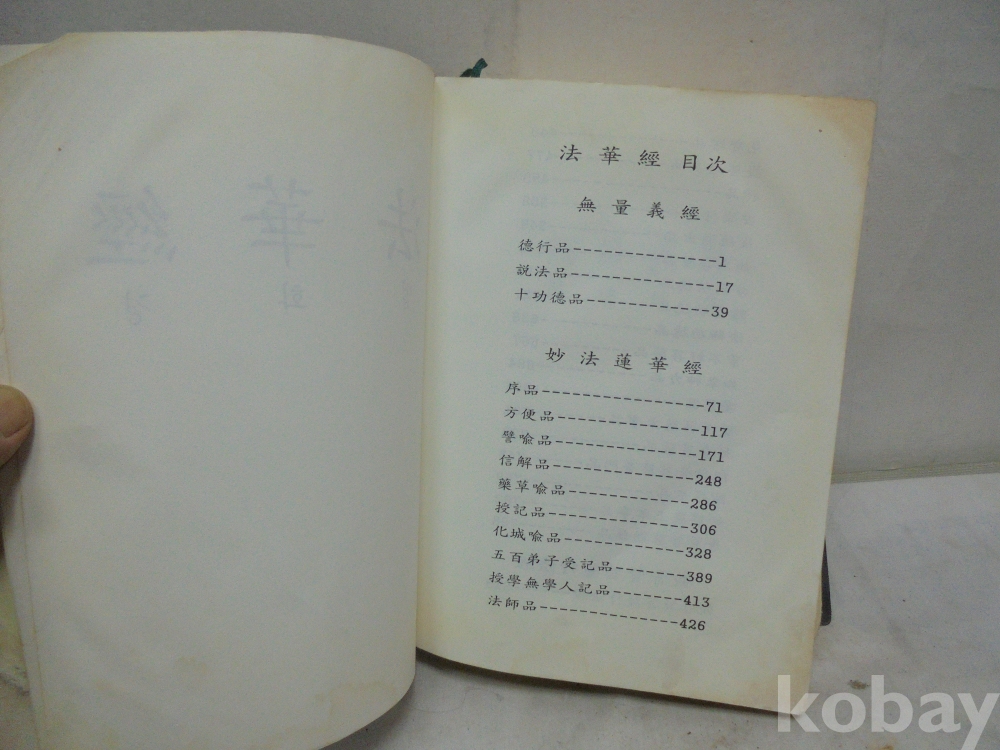 法華經目次
無量義經
德行品--------------1
説法品--------------17
十功德品------------39
妙法蓮華經
序品----------------71
方便品--------------117
譬喩品--------------171
信解品--------------248
藥草喩品------------286
授記品--------------306
化城喩品------------328
五百弟子受記品-------389
授學無學人記品-------413
法師品--------------426
kobay